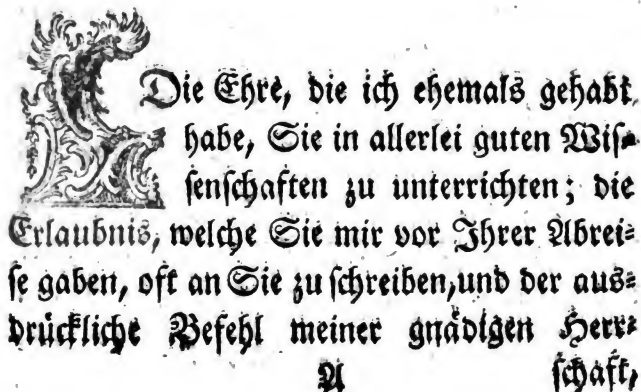 Die Ehre, die ich ehemals gehabt
habe, Sie in allerlei guten Wiſ⸗
ſenſchaften zu unterrichten; die
Erlaubnis, welche Sie mir vor Ihrer Abrei⸗
ſe gaben, oft an Sie zu ſchreiben, und der aus⸗
drückliche Befehl meiner gnädigen Herr⸗
A ſchaft,